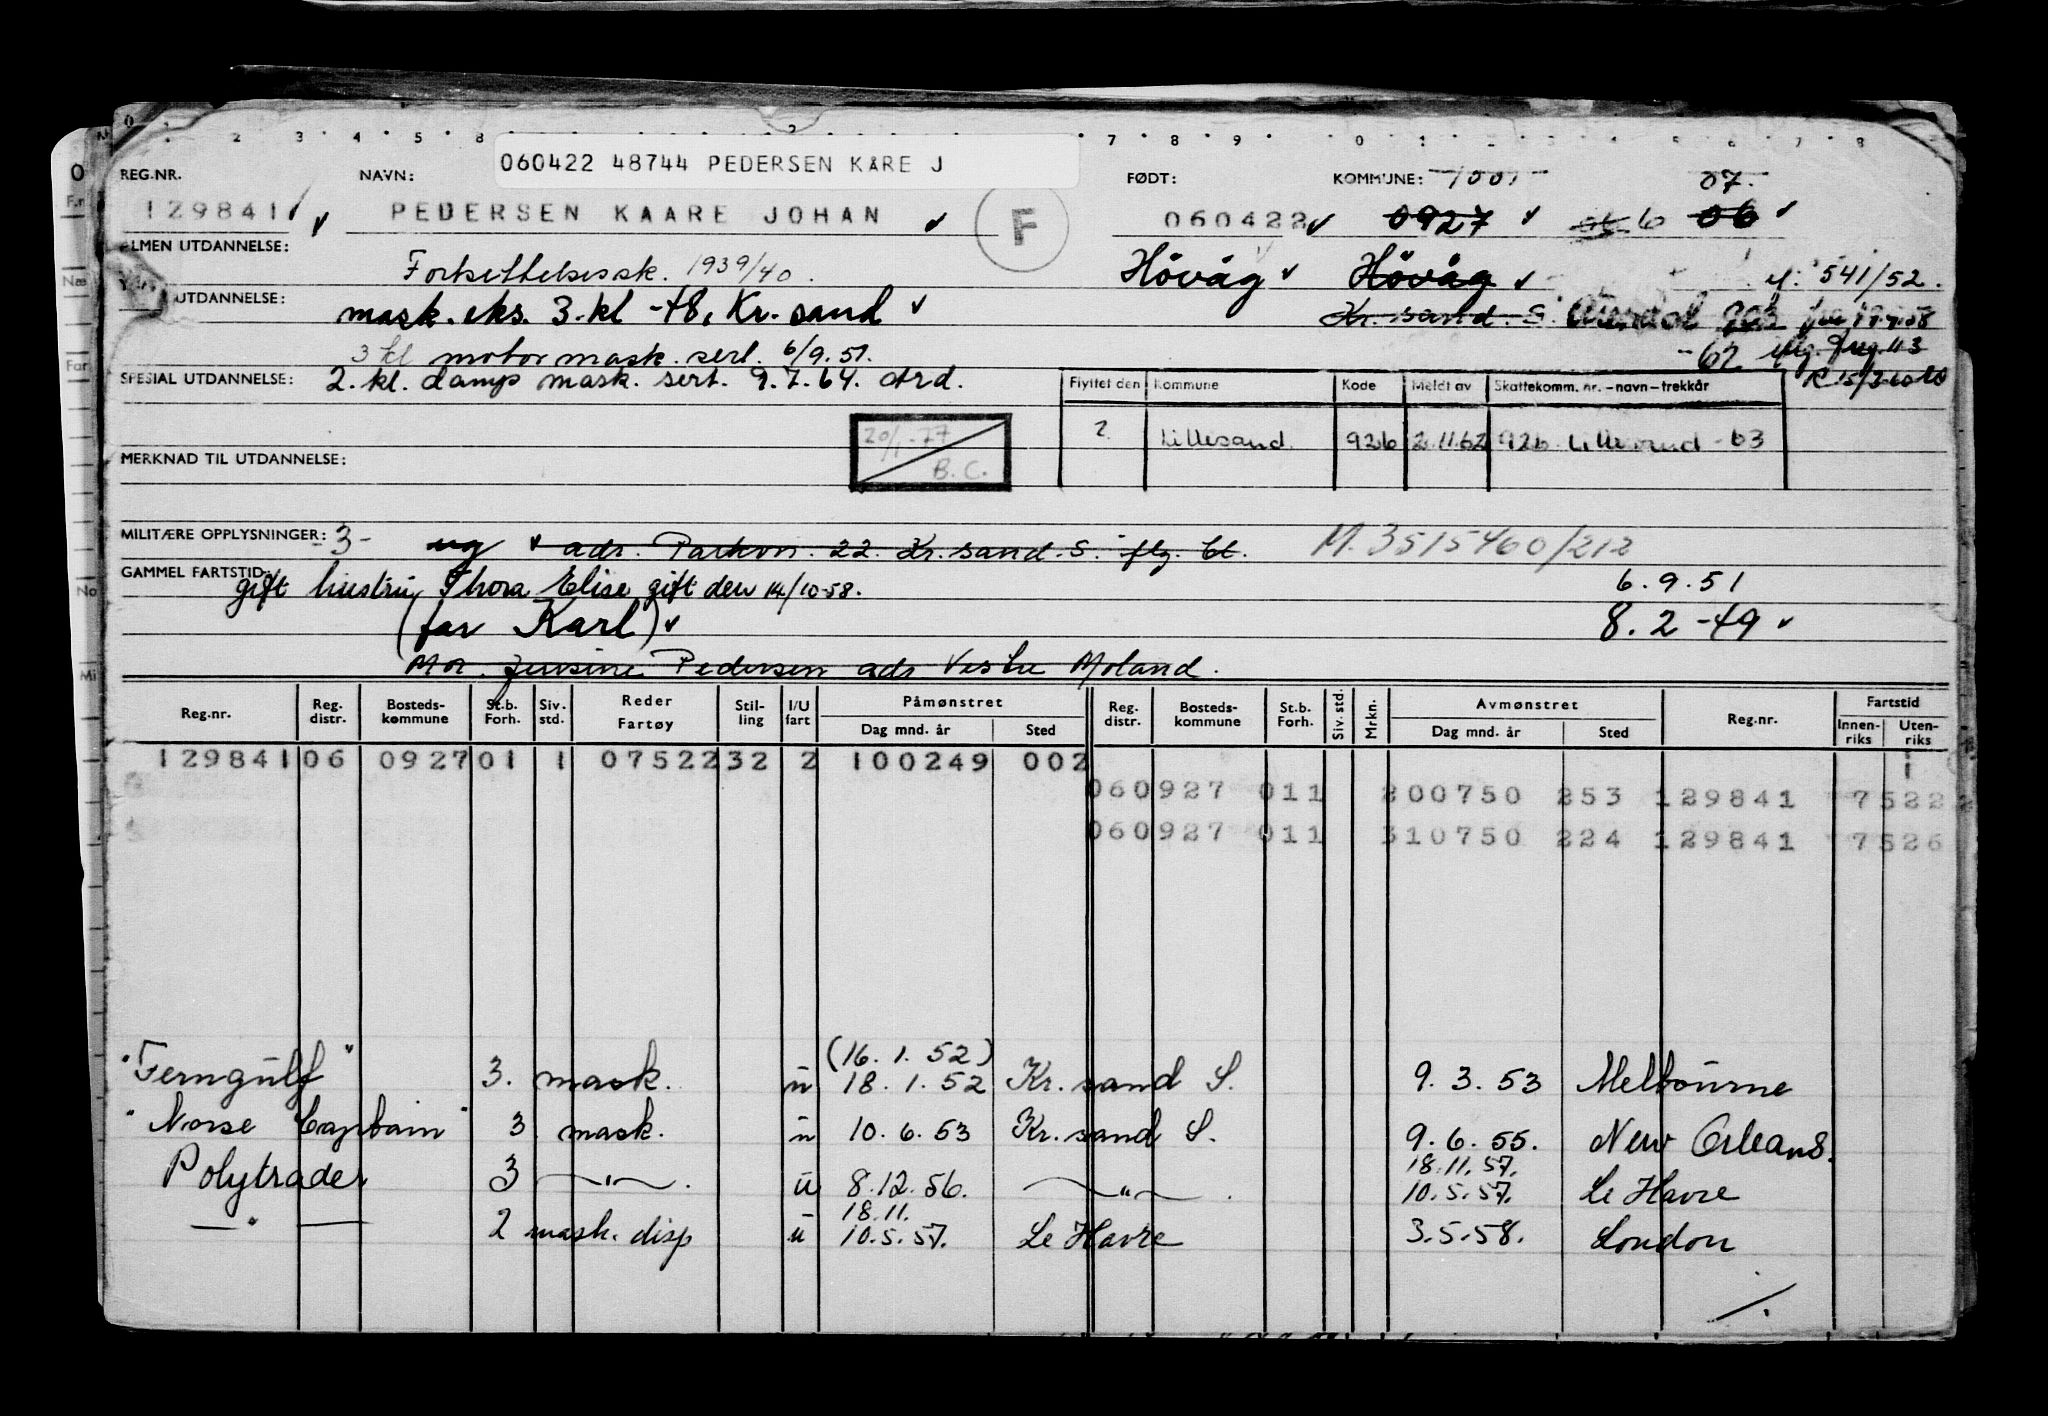 060422 48744 PEDERSEN KÅRE J
REG.NR. NAVN: FØDT: KOMMUNE: 1001 07.
129841 PEDERSEN KAARE JOHAN F 060422 0927 06
ALMEN UTDANNELSE: Fortsettelsessk. 1939/40. Hövåg Hövåg 541/52.
UTDANNELSE: mask. eks. 3. kl -48, Kr. sand Kr. sand. S. Arendal 903 fra
3 kl motor mask. sert. 6/9.51. -62
SPESIAL UTDANNELSE: 2. kl. damp mask. sert. 9.7.64. Ard.
Flyttet den Kommune Kode Meldt av Skattekomm. nr. – navn – trekkår
? Lillesand 926 2.11.62 926 Lillesand -63
20/1-77
B.C.
MERKNAD TIL UTDANNELSE:
MILITÆRE OPPLYSNINGER: -3- ug adr. Parkvn. 22. Kr.sand. S. M.3515460/212
GAMMEL FARTSTID: gift hustru Thora Elise gift den 14/10-58. 6.9.51
(far Karl) 8.2-49
Mor. Pedersen adr Vestre Moland.
Reg.nr. Reg. distr. Bosteds-kommune St.b. Forh. Siv. std. Reder Fartøy Stil-ling I/U fart Påmønstret Dag mnd. år Sted Reg. distr. Bosteds-kommune St.b. Forh. Siv. std. Mrkn. Avmønstret Dag mnd. år Sted Reg.nr. Fartstid Innen-riks Uten-riks
129841 06 0927 01 1 07522 32 2 100249 002 1
060927 011 200750 253 129841 7522
060927 011 310750 224 129841 7526
(16. 1. 52)
"Ferngulf" 3. mask. u 18. 1. 52 Kr. sand S. 9. 3. 53 Melbourne
"Norse Captain" 3 mask. u 10. 6. 53 Kr. sand S. 9. 6. 55. New Orleans.
18.11.57.
Polytrader 3 —"— . u 8.12.56. —"— . 10.5.57. Le Havre
18.11.
—"— 2 mask. disp u 10.5.57. Le Havre 3.5.58. London